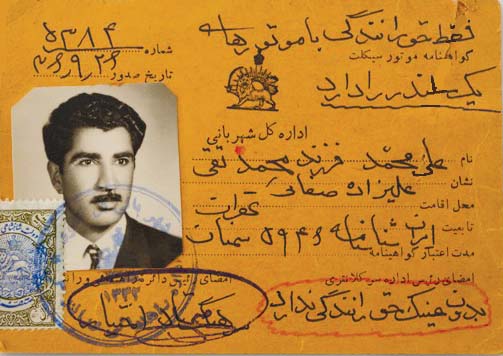 فقط حق رانندگی با موتورهای
گواهینامه موتور سیکلت
یک سیلندر را دارد
شماره ۵۳۸۴
تاریخ صدور
اداره کل شهربانی
نام علی محمد فرزند محمد تقی
نشان علیزاده صفائی
محل اقامت تهران
تابعیت ایران شناسنامه ۵۹۴۶ سمنان
مدت اعتبار گواهینامه
امضای رئیس اداره سر کلانتری
امضای رئیس دائره راهنمائی و رانندگی
بدون عینک حق رانندگی ندارد
۱۳۳۲